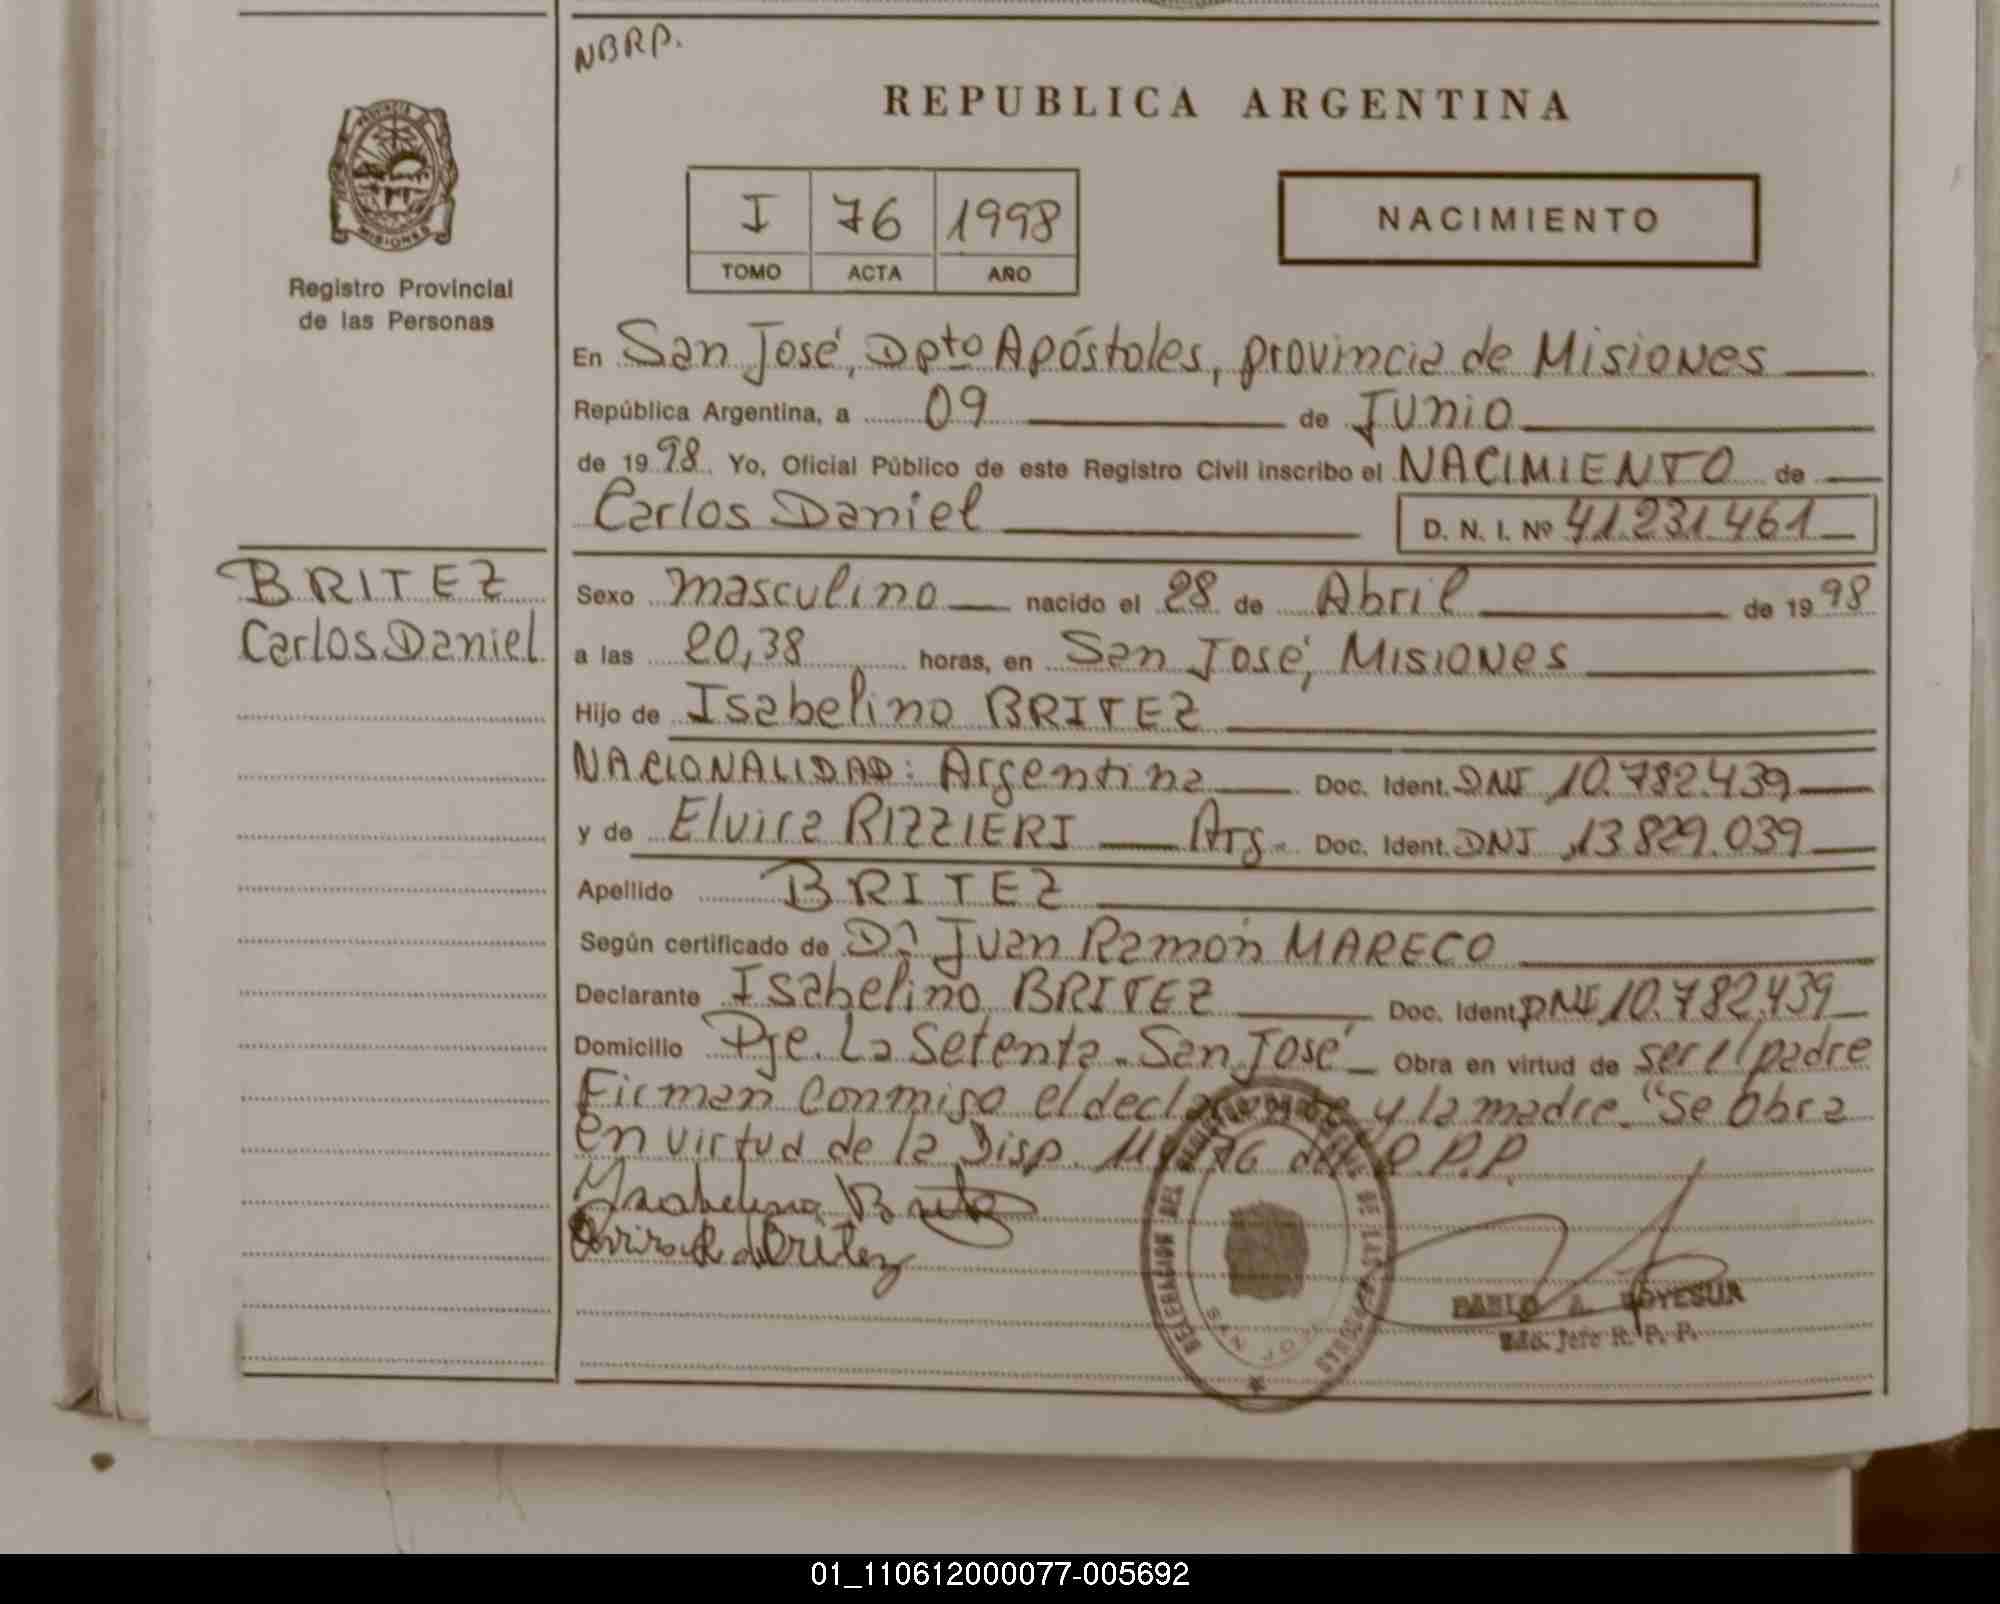 NBRP.
REPUBLICA ARGENTINA
PROVINCIA DE
MISIONES
Registro Provincial
de las Personas
I 76 1998
TOMO ACTA AÑO
NACIMIENTO
En San José, Dpto Apóstoles, provincia de Misiones
República Argentina, a 09 de Junio
de 1998 Yo, Oficial Público de este Registro Civil inscribo el NACIMIENTO de
Carlos Daniel D. N. I. Nº 41.231.461
BRITEZ
Carlos Daniel
Sexo masculino nacido el 28 de Abril de 1998
a las 20,38 horas, en San José, Misiones
Hijo de Isabelino BRITEZ
NACIONALIDAD: Argentina Doc. Ident. DNI 10.782.439
y de Elvira RIZZIERI Arg. Doc. Ident. DNI 13.829.039
Apellido BRITEZ
Según certificado de Dr. Juan Ramón MARECO
Declarante Isabelino BRITEZ Doc. Ident. DNI 10.782.439
Domicilio Pje. La Setenta - San José Obra en virtud de ser el padre
Firman conmigo el declarante y la madre. "Se Obra
en virtud de la Disp. del R.P.P.
Isabelino Britez
de Britez
DELEGACION DEL REGISTRO DE LAS PERSONAS
SAN JOSE
PABLO A. BOYESUR
Jefe R. P. P.
01_110612000077-005692